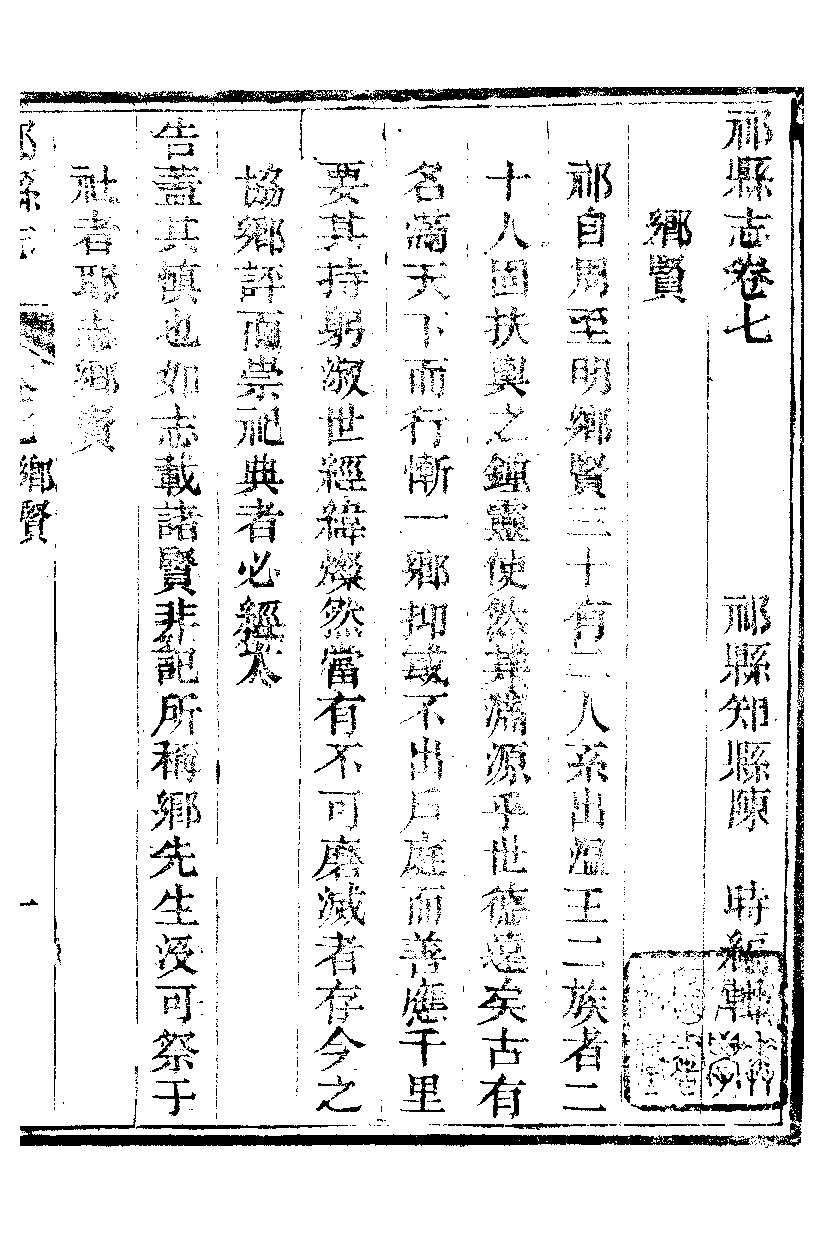 祁縣志卷七 祁縣知縣陳 時編輯
鄉賢
祁自周至明鄉賢三十有二人系出溫王二族者二
十人固扶輿之鍾靈使然其淵源乎世德遠矣古有
名滿天下而行慚一鄉抑或不出戶庭而善應千里
要其持躬淑世經緯燦然當有不可磨滅者存今之
協鄉評而崇祀典者必經入
告蓋其慎也如志載諸賢非記所稱鄉先生沒可祭于
社者耶志鄉賢
祁縣志 卷七鄉賢 一